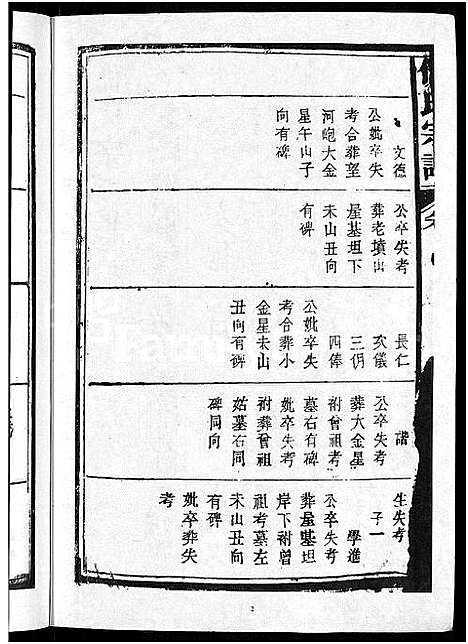 氏宗譜
文德
公妣卒失
考合葬望
河皰大金
星午山子
向有碑
公卒失考
葬老墳山
屋基坦下
未山丑向
有碑
長仁
次儀
三仴
四俸
公妣卒失
考合葬小
金星未山
丑向有碑
諧
公卒失考
葬大金星
祔曾祖考
墓右有碑
妣卒失考
祔葬曾祖
姑墓右同
碑同向
生失考
子一
學進
公卒失考
葬屋基坦
岸下祔曾
祖考墓左
未山丑向
有碑
妣卒葬失
考
2